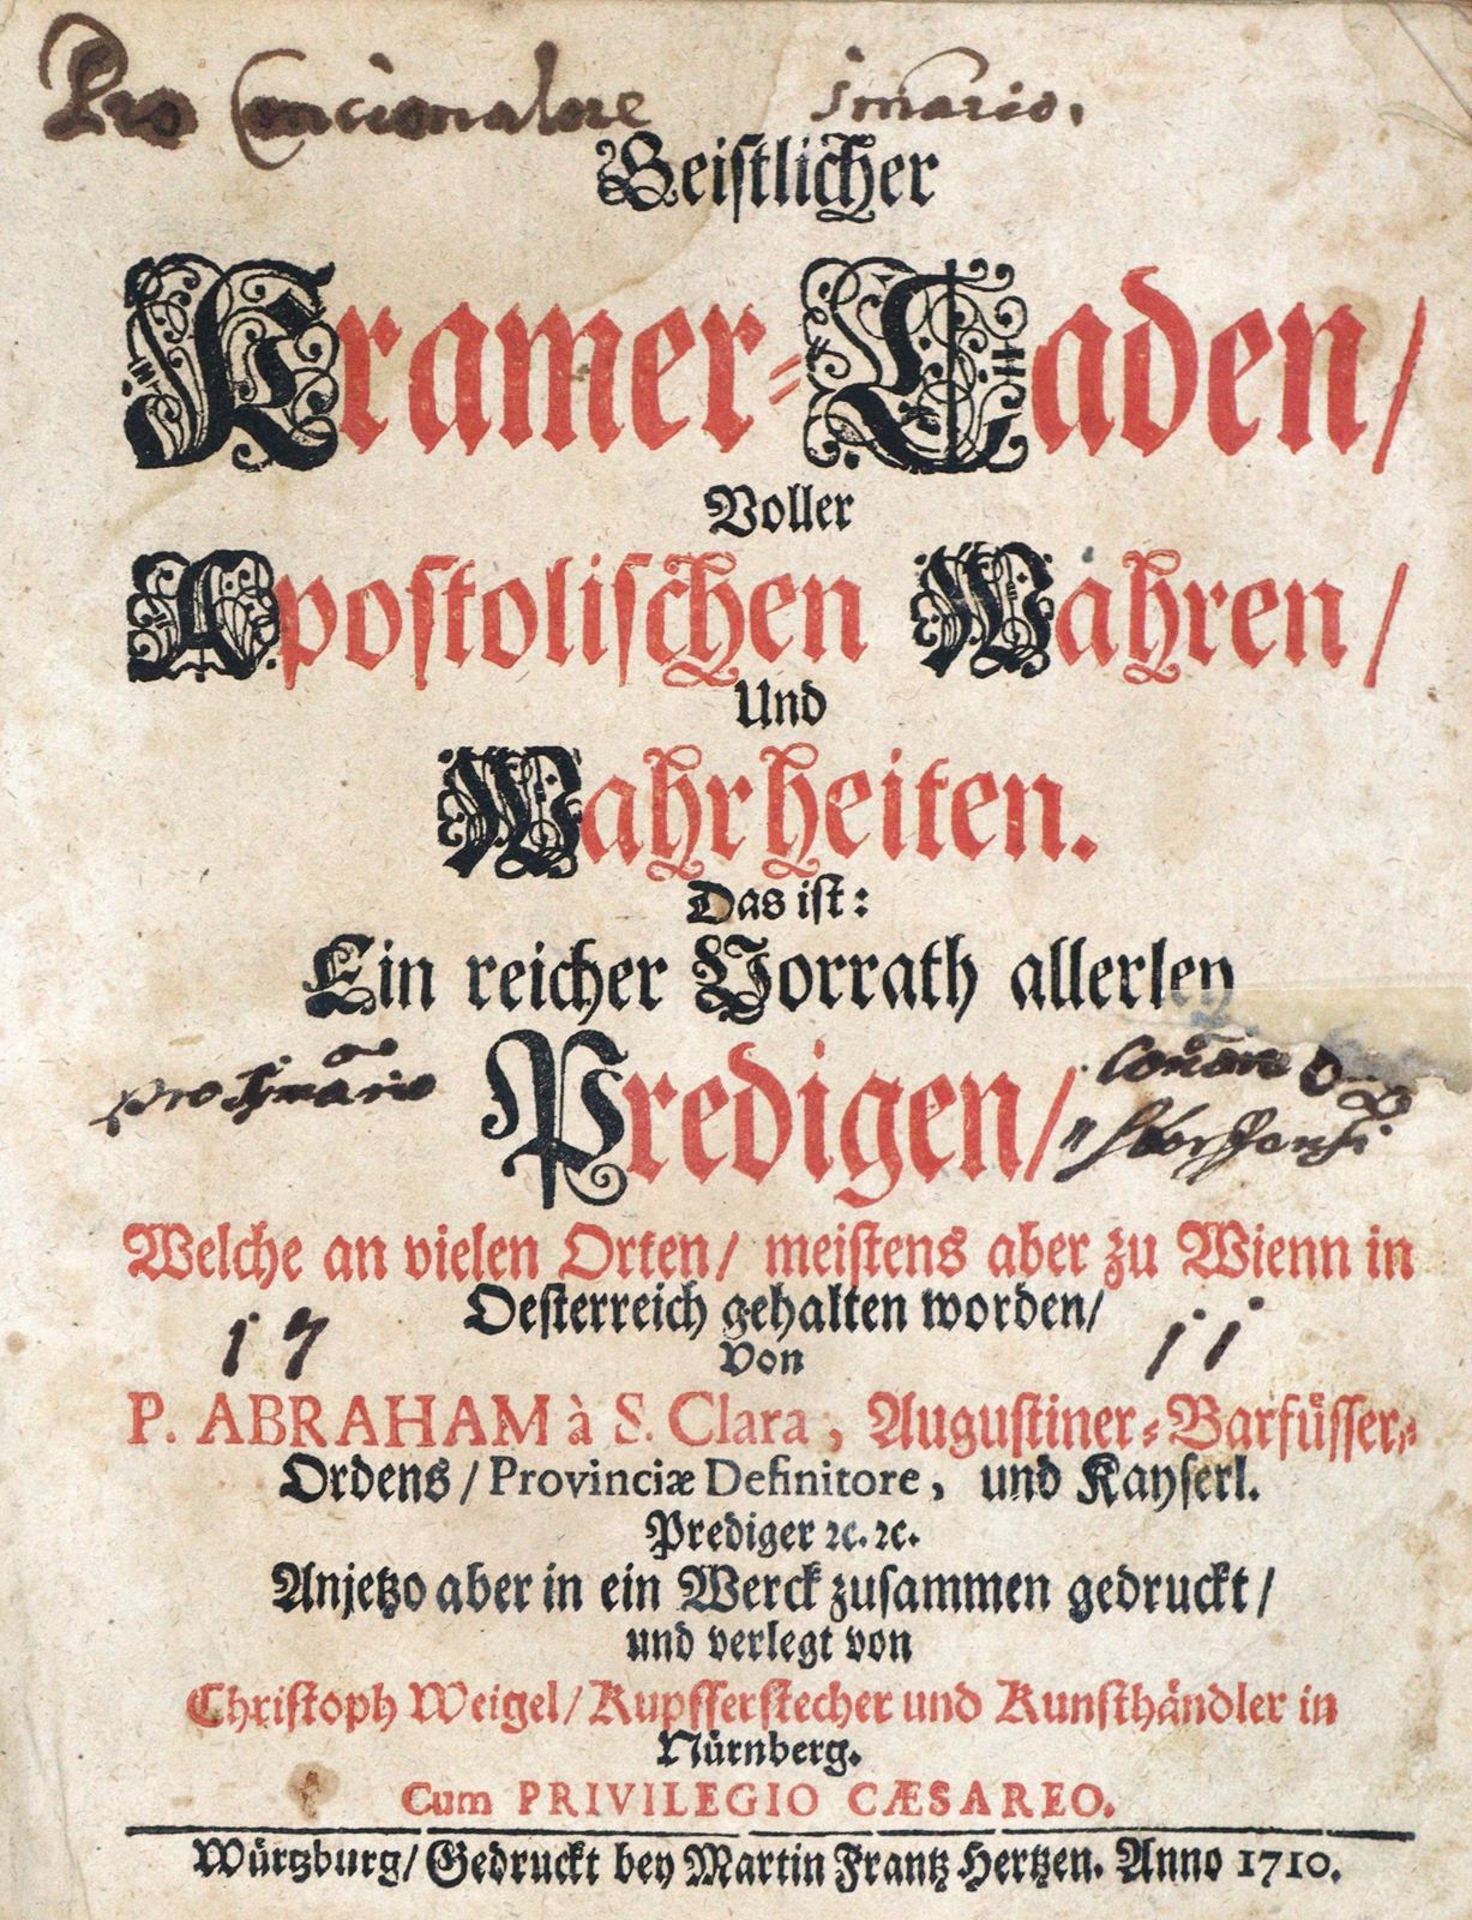 Pro Concionatore
Geistlicher
Kramer-Laden/
Voller
Apostolischen Wahren/
Und
Wahrheiten.
Das ist:
Ein reicher Vorrath allerley
Predigen/
Welche an vielen Orten/ meistens aber zu Wienn in
Oesterreich gehalten worden/
17 11
Von
P. ABRAHAM à S. Clara, Augustiner-Barfüsser-
Ordens/ Provinciæ Definitore, und Kayserl.
Prediger ꝛc. ꝛc.
Anjetzo aber in ein Werck zusammen gedruckt/
und verlegt von
Christoph Weigel/ Kupfferstecher und Kunsthändler in
Nürnberg.
Cum PRIVILEGIO CÆSAREO.
Würtzburg/ Gedruckt bey Martin Frantz Hertzen. Anno 1710.